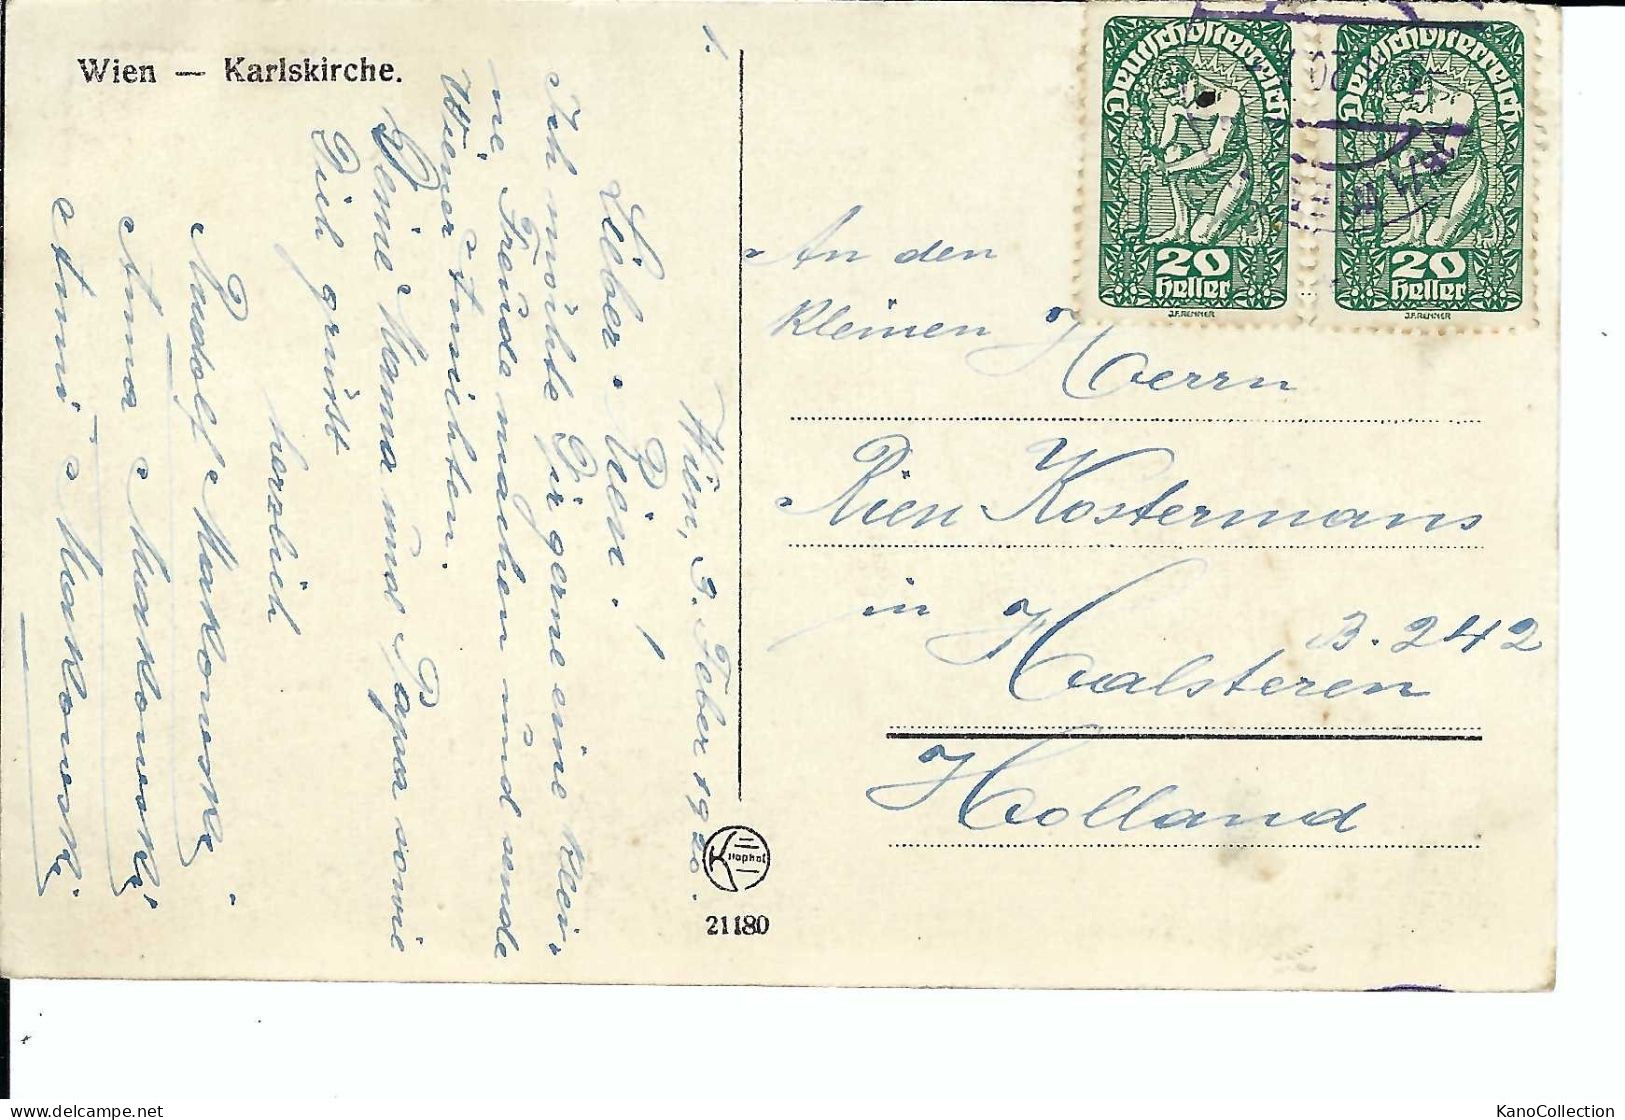 Wien — Karlskirche.
1.
Wien, 3. Feber 1920.
Lieber Rien!
Ich möchte Dir gerne eine klei-
ne Freude machen und sende
Wiener Ansichten.
Deine Mama und Papa sowie
Dich grüßt
herzlich
Rudolf Makowski.
Anna Makowski
Anni Makowski
Deutschösterreich
20
Heller
J.F.RENNER
Deutschösterreich
20
Heller
J.F.RENNER
An den
kleinen Herrn
Rien Kostermans
in Halsteren B. 242
Holland
Kilophot
21180
KanoCollection
delcampe.net